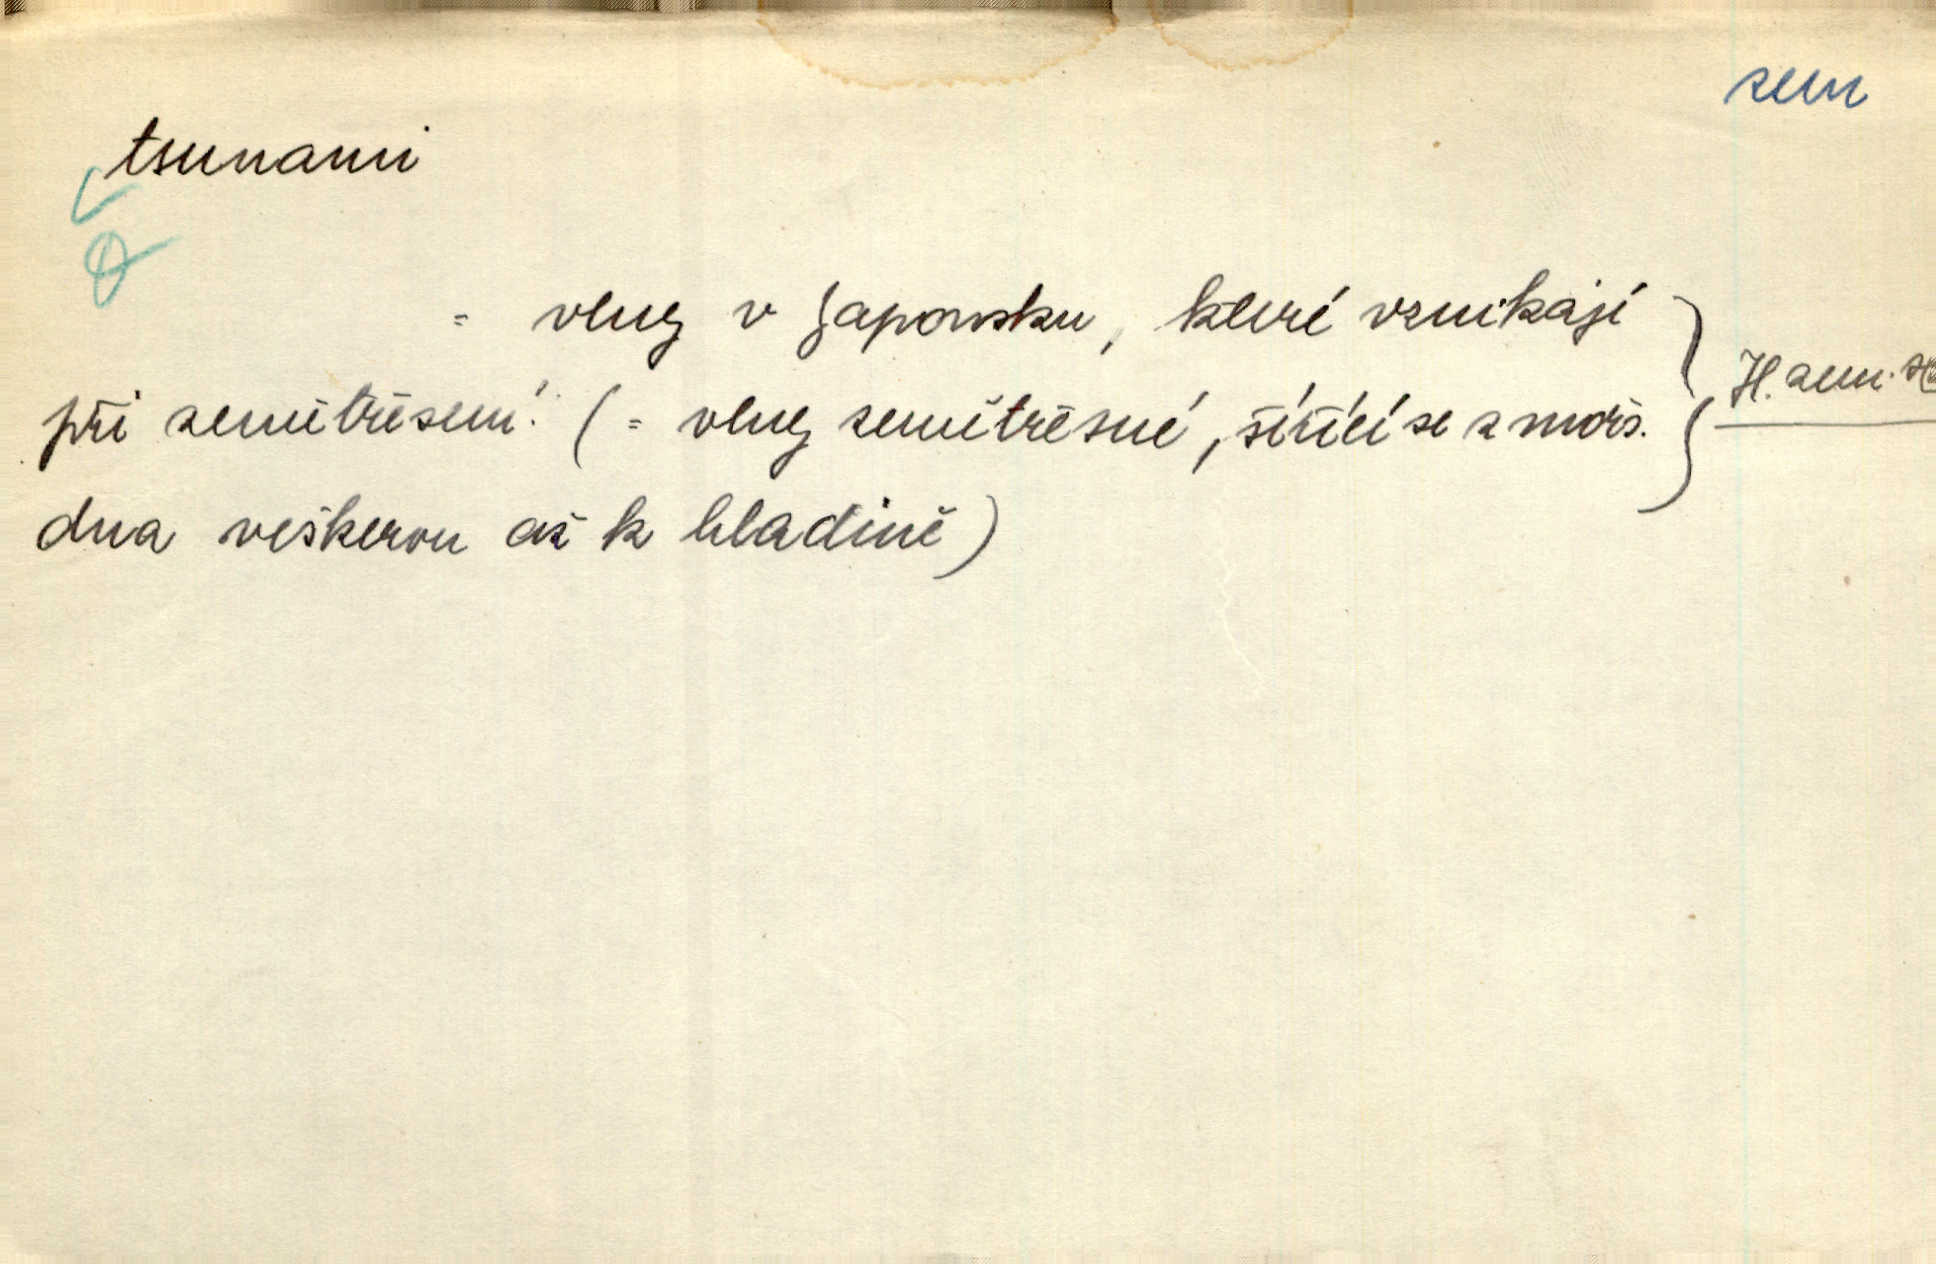 zem
tsunami
= vlny v Japonsku, které vznikají
při zemětřesení. (= vlny zemětřesné, šířící se z mořs.
dna veškerou až k hladině)
H. zem.